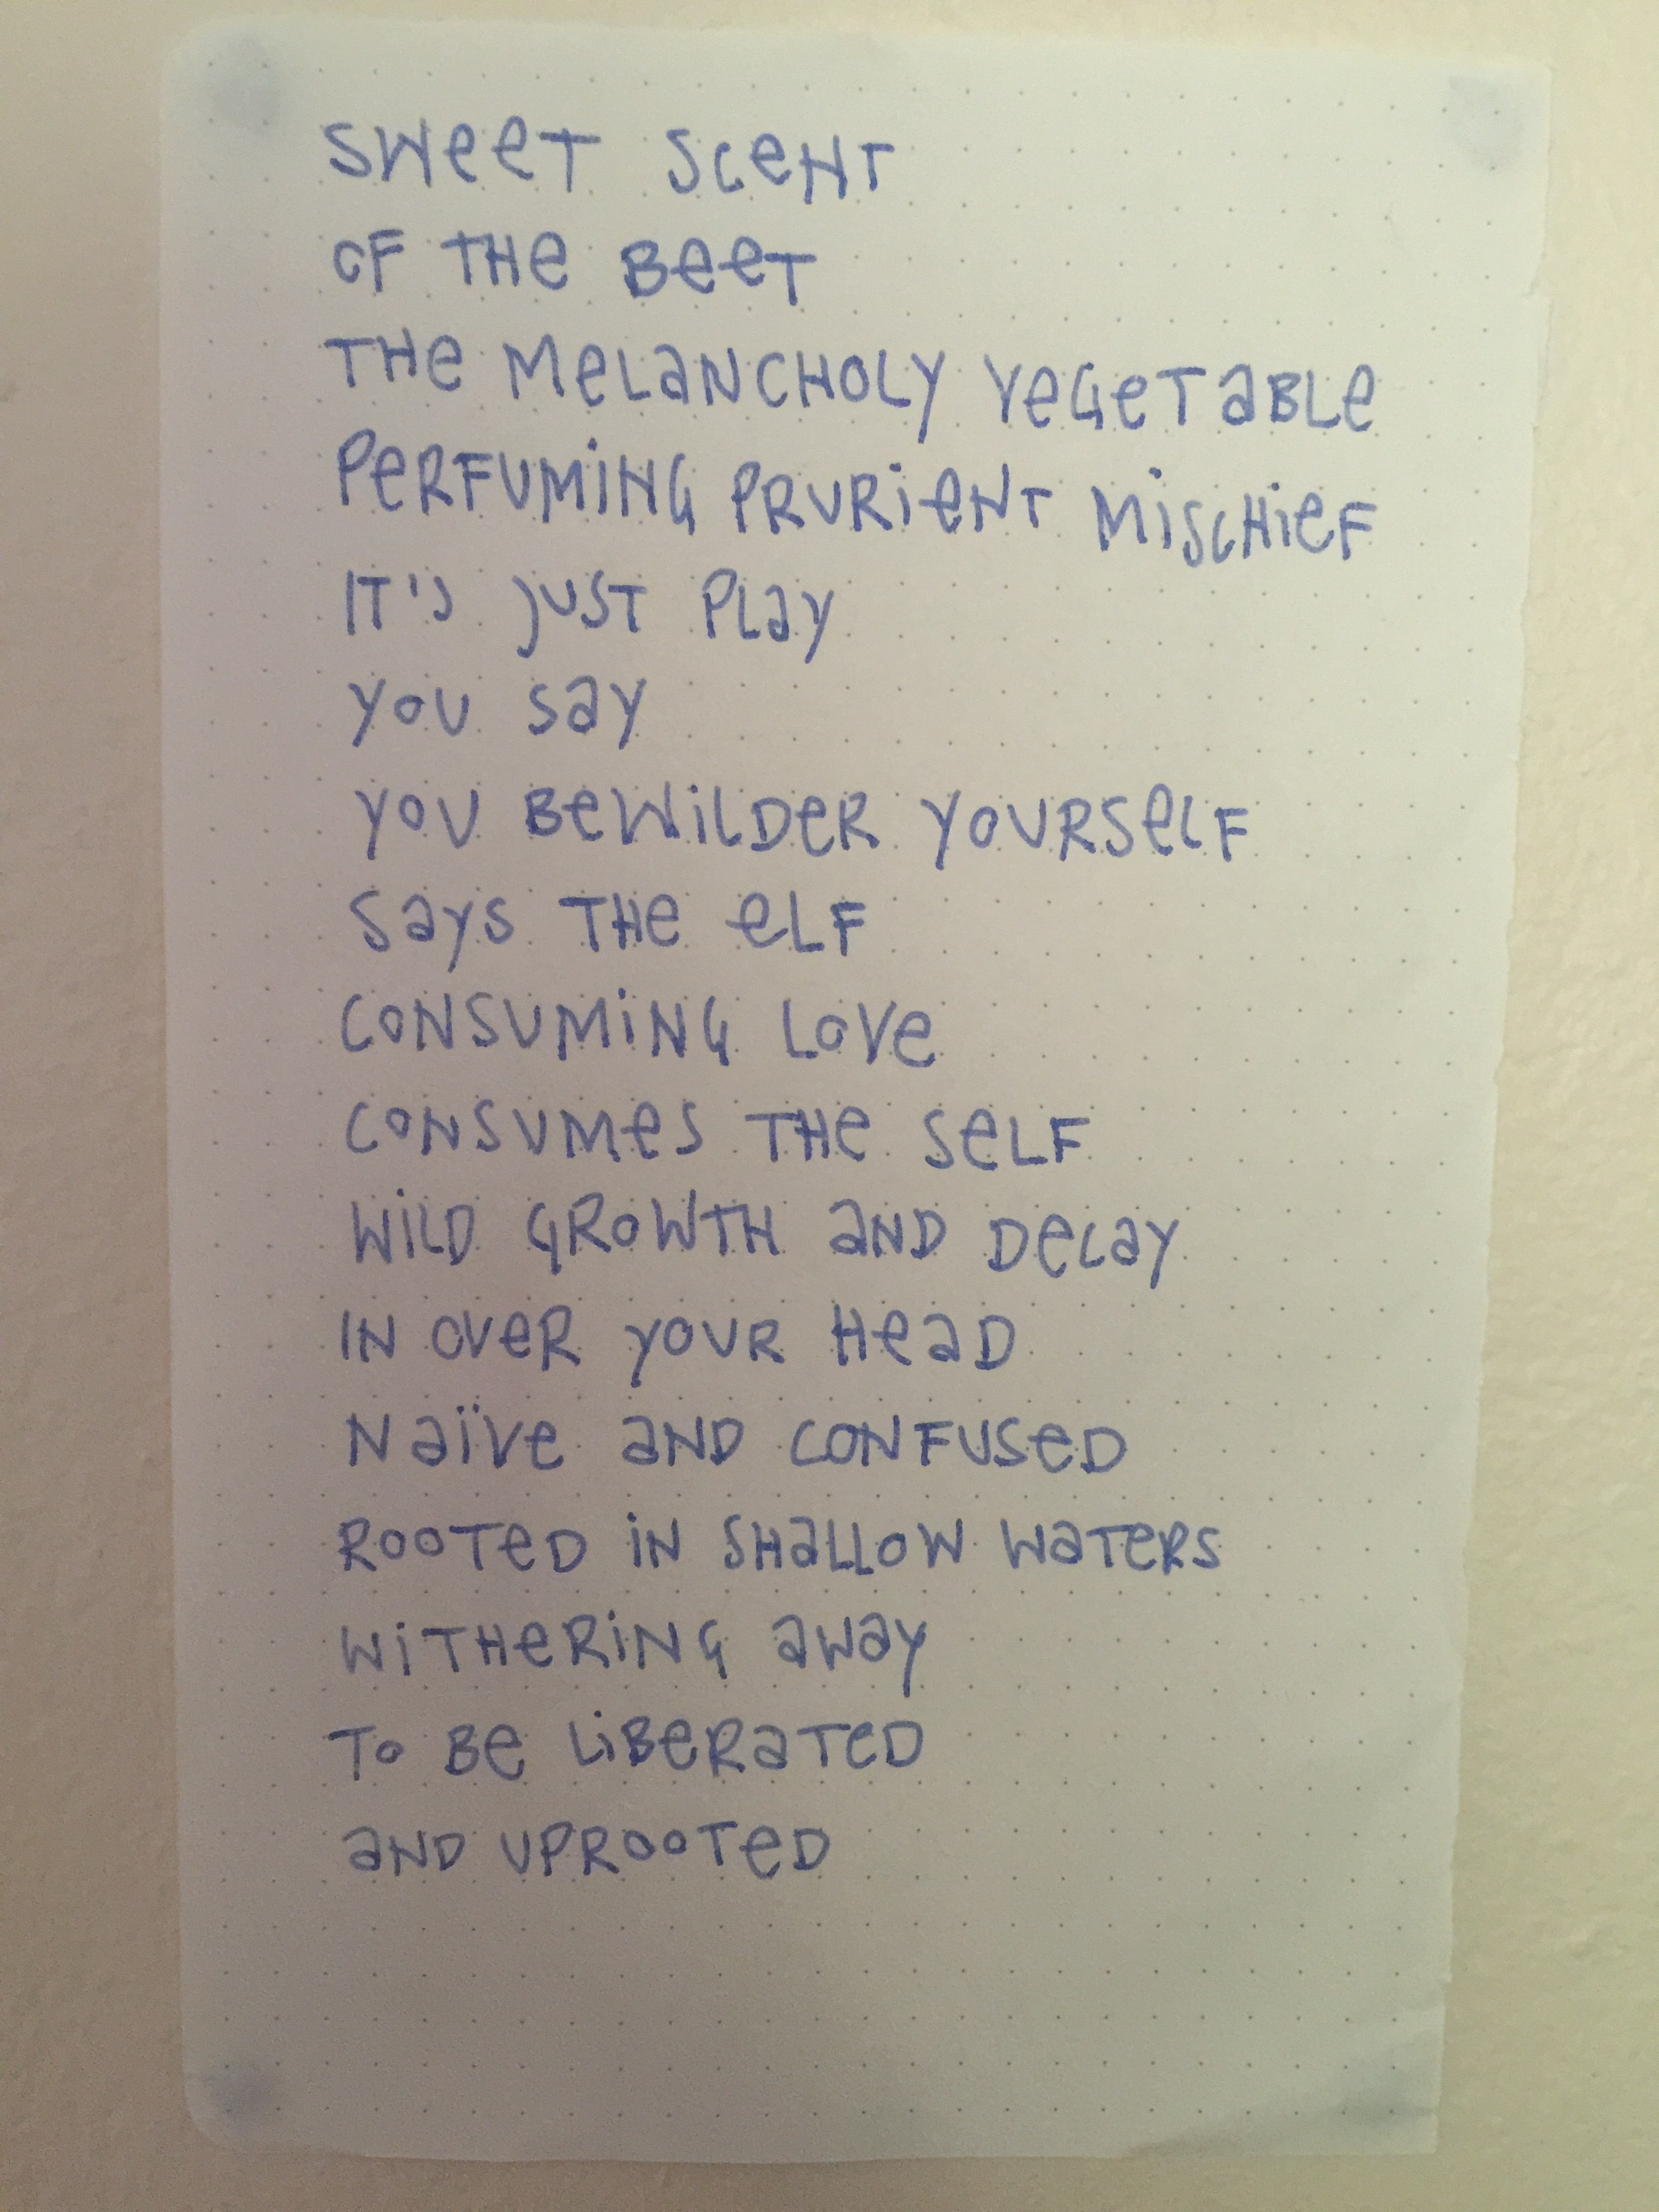 SWEET SCENT
OF THE BEET
THE MELANCHOLY VEGETABLE
PERFUMING PRURIENT MISCHIEF
IT'S JUST PLAY
YOU SAY
YOU BEWILDER YOURSELF
SAYS THE ELF
CONSUMING LOVE
CONSUMES THE SELF
WILD GROWTH AND DECAY
IN OVER YOUR HEAD
NAÏVE AND CONFUSED
ROOTED IN SHALLOW WATERS
WITHERING AWAY
TO BE LIBERATED
AND UPROOTED